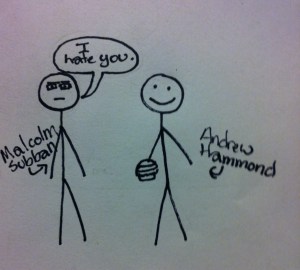 I
hate you.
Malcolm
Subban
Andrew
Hammond